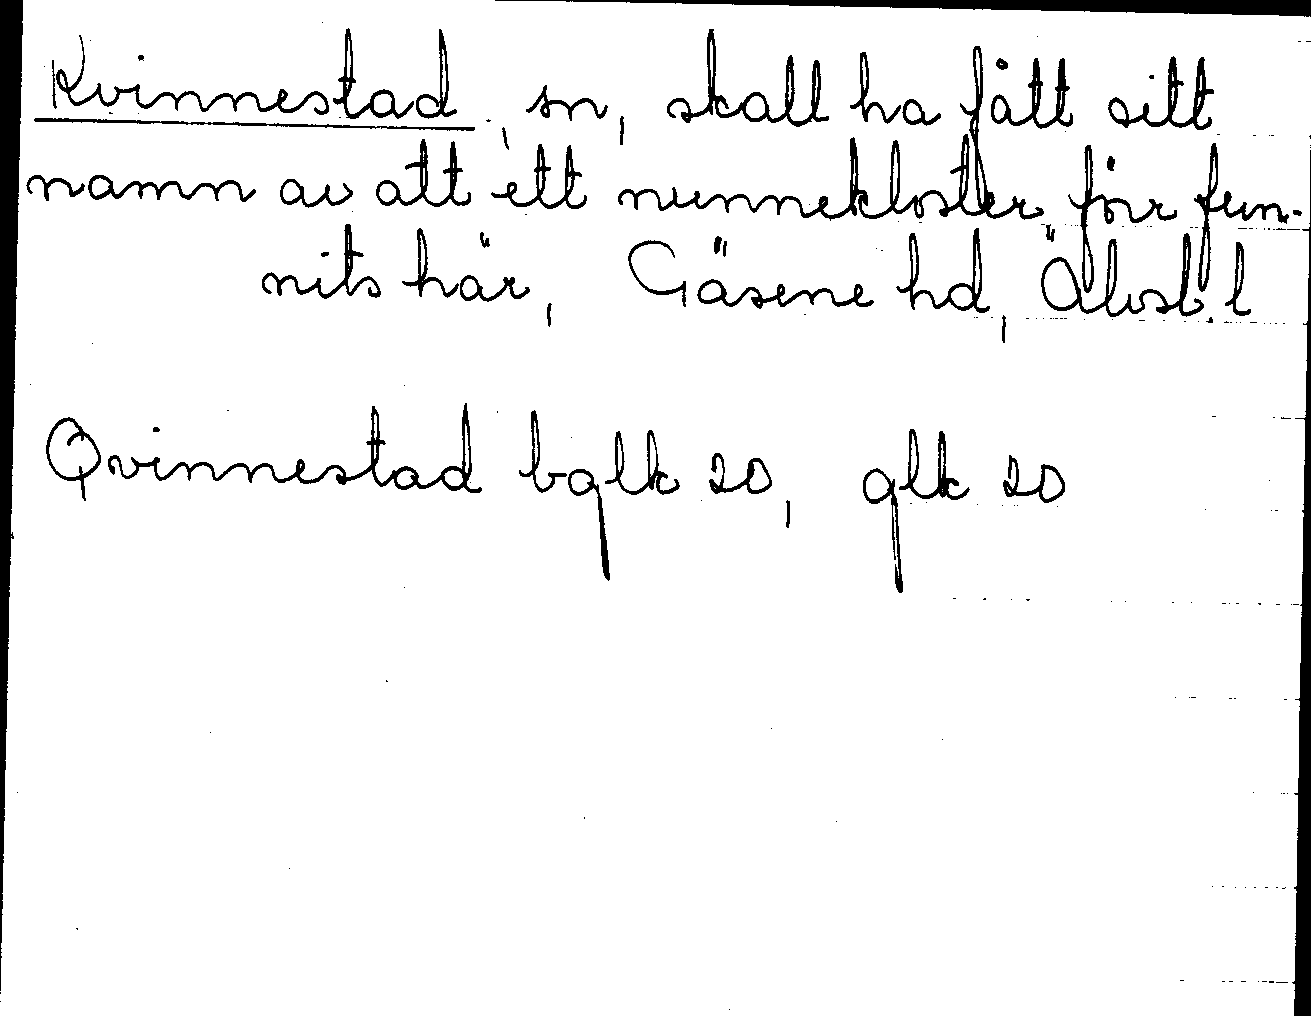 Kvinnestad, sn, skall ha fått sitt
namn av att ett nunnekloster förr fun-
nits här, Gäsene hd, Älvsb. l
Qvinnestad bqlk 20, qlk 20